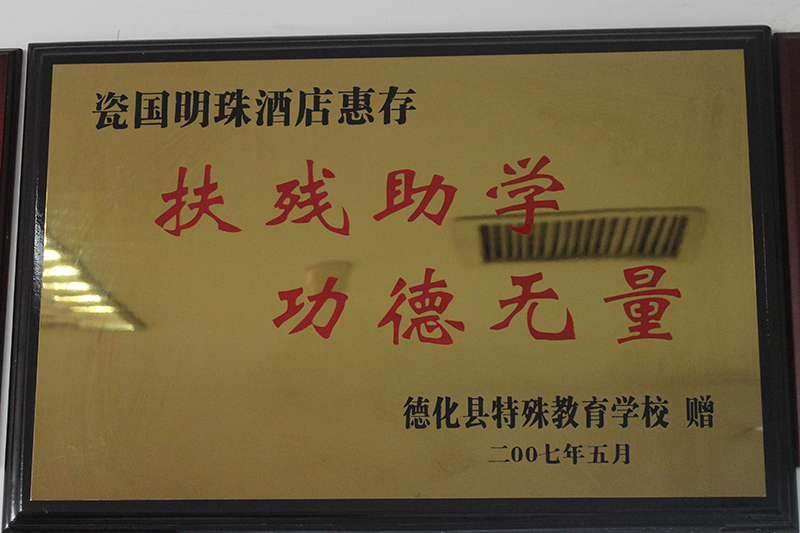 瓷国明珠酒店惠存
扶残助学
功德无量
德化县特殊教育学校 赠
二00七年五月